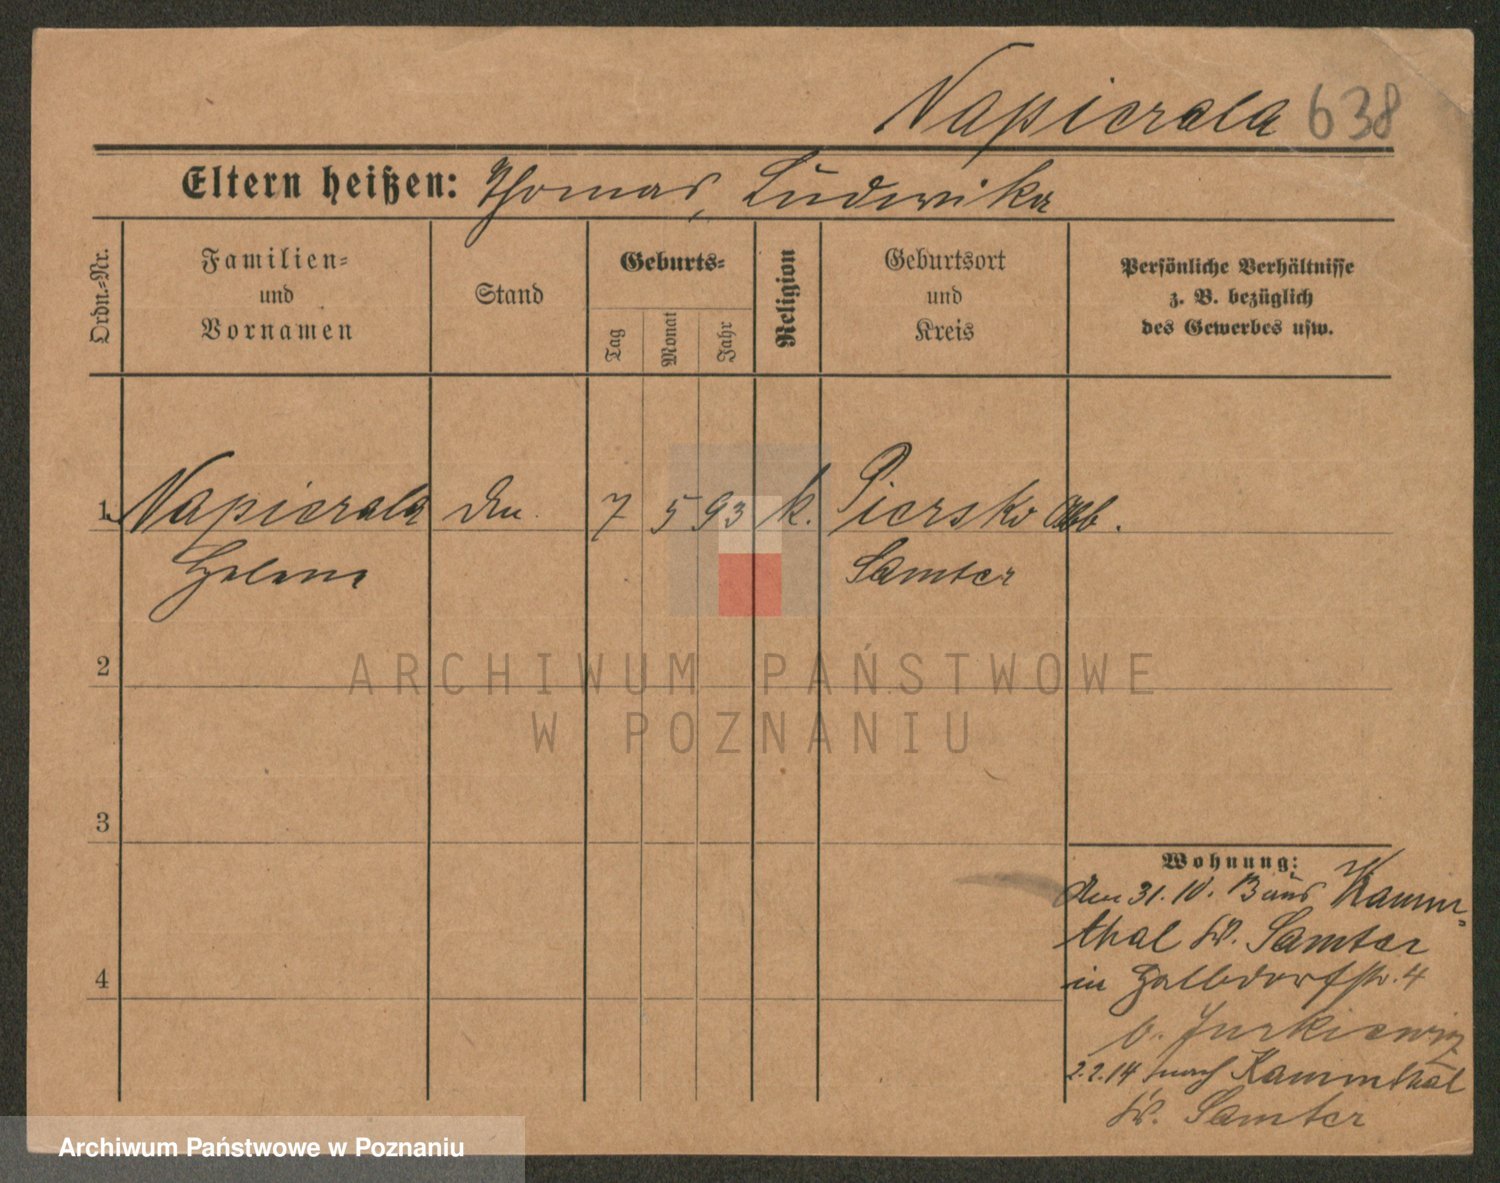 Napierala 638
Eltern heißen: Thomas, Ludwika
Ordn.-Nr.
Familien-
und
Vornamen
Stand
Geburts-
Tag
Monat
Jahr
Religion
Geburtsort
und
Kreis
Persönliche Verhältnisse
z. B. bezüglich
des Gewerbes usw.
1 Napierala 7 5 93 k. Piersko
Helene Samter
2
ARCHIWUM PAŃSTWOWE
W POZNANIU
3
4
Wohnung:
31. 10. Kamm-
thal Kr. Samter
in Halbdorfstr. 4
b. Jurkiewicz
2.2.14 nach Kammthal
Kr. Samter
Archiwum Państwowe w Poznaniu